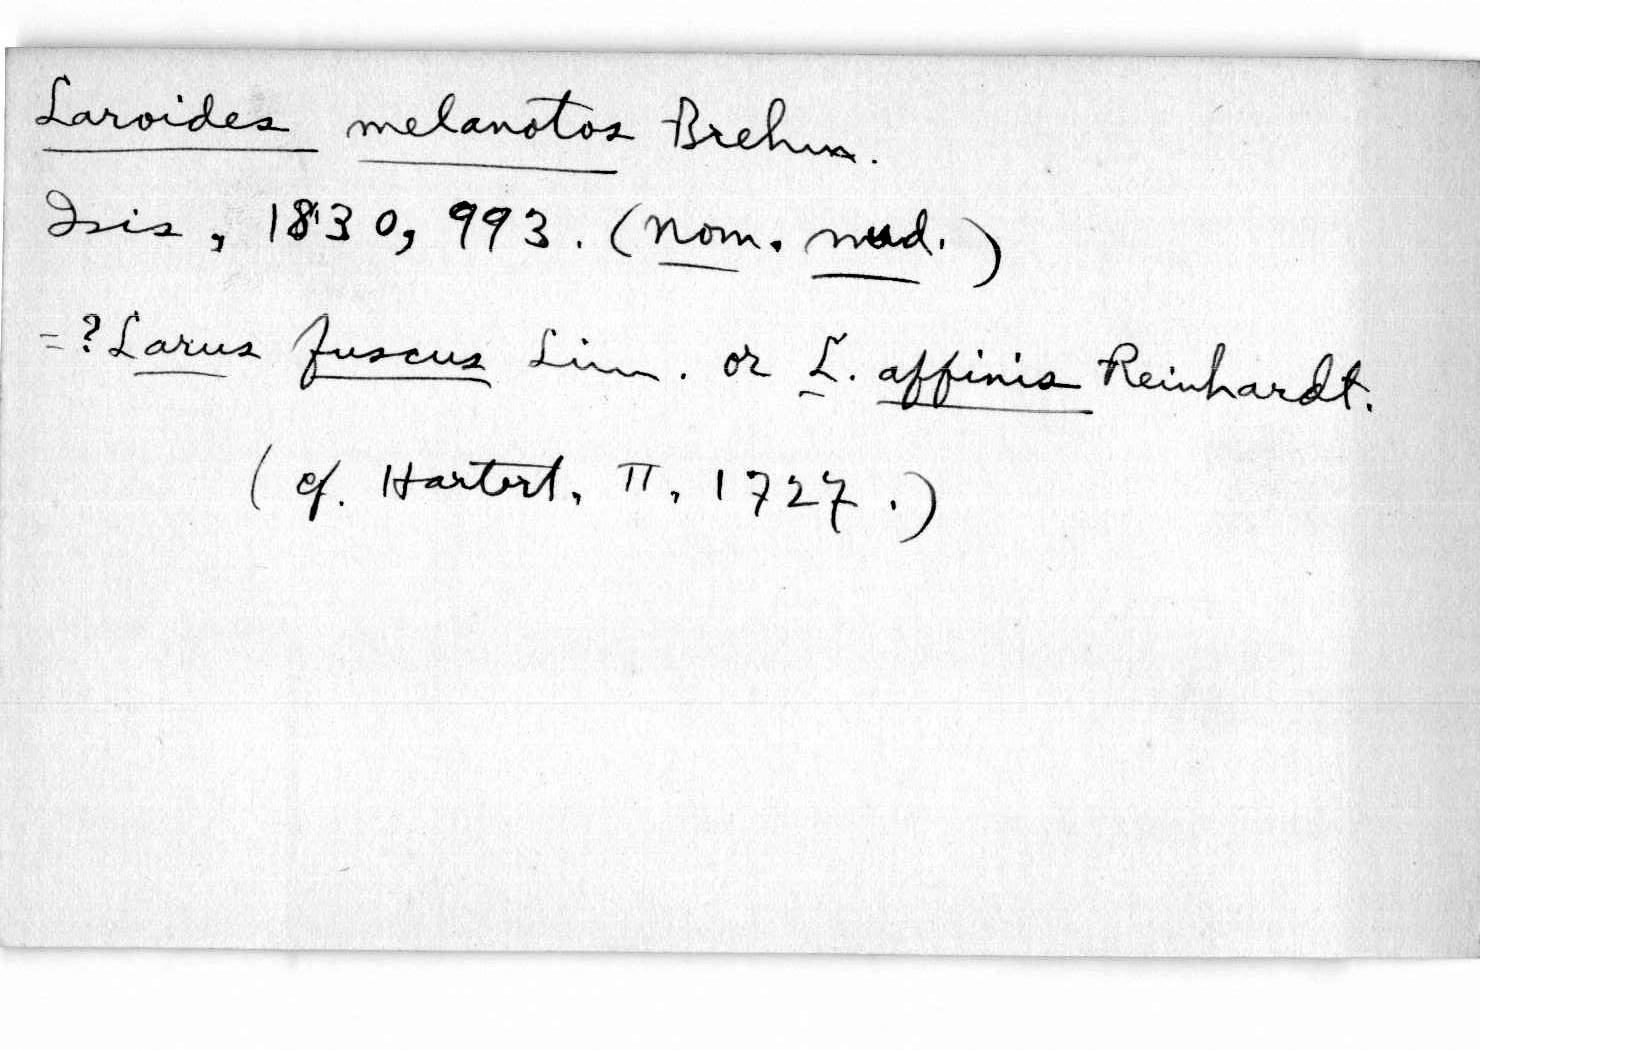 Laroides melanotos Brehm.
Isis, 1830, 993. (nom. nud.)
=? Larus fuscus Linn. or L. affinis Reinhardt.
(cf. Hartert, II, 1727.)